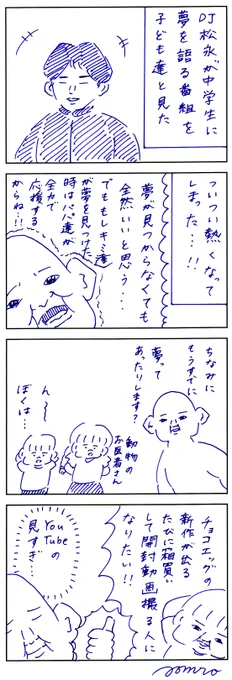 DJ松永が中学生に
夢を語る番組を
子ども達と見た
ついつい熱くなって
しまった…!!
夢が見つからなくても
全然いいと思う…
でももしキミ達
が夢を見つけた
時はパパ達が
全力で
応援する
からね…!!
ちなみに
もうすでに
夢って
あったりします?
動物の
お医者さん
ん〜
ぼくは…
チョコエッグの
新作が出る
たびに箱買い
して開封動画撮る人に
なりたい!!
YouTubeの
見すぎ…